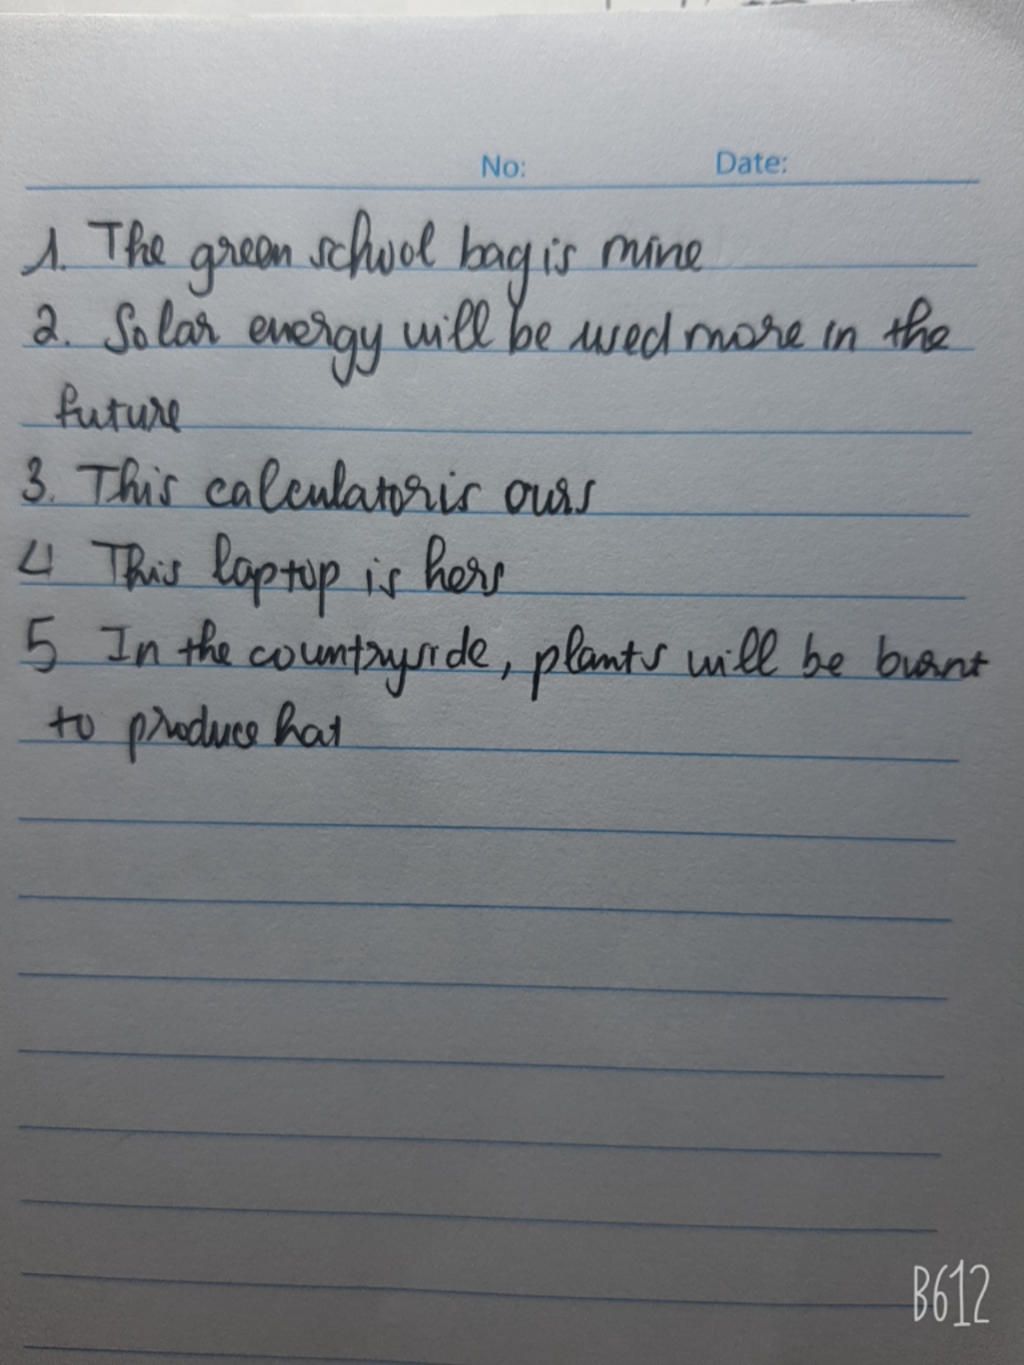 No: Date:
1. The green school bag is mine
2. Solar energy will be used more in the
future
3. This calculator is ours
4 This laptop is hers
5 In the countryside, plants will be burnt
to produce hat
B612